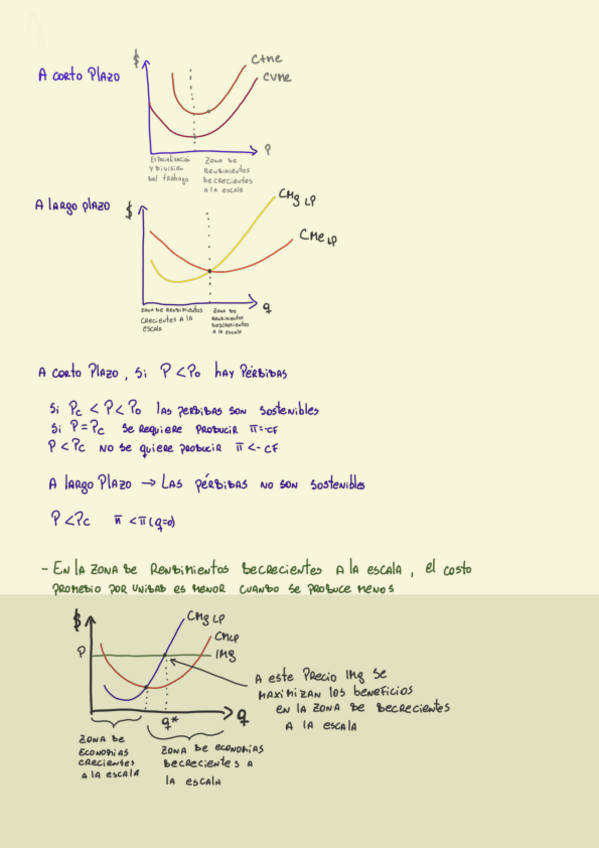 A corto Plazo
$
CTMe
CVMe
P
Especialización
y División
del trabajo
Zona de
Rendimientos
Decrecientes
a la escala
A largo plazo
$
CMg LP
CMe LP
q
Zona de Rendimientos
crecientes a la
escala
Zona de
Rendimientos
Decrecientes
a la escala
A corto Plazo, si P < Po hay Pérdidas
Si Pc < P < Po las perdidas son sostenibles
Si P = Pc se requiere producir π=-CF
P < Pc no se quiere producir π <- CF
A largo Plazo → Las pérdidas no son sostenibles
P < Pc π < π(q=0)
- En la zona de Rendimientos decrecientes a la escala, el costo
promedio por unidad es menor cuando se produce menos
$
CMg LP
CMLP
P
IMg
A este Precio IMg se
maximizan los beneficios
en la zona de decrecientes
a la escala
q*
q
Zona de
economias
crecientes
a la escala
Zona de economias
decrecientes a
la escala